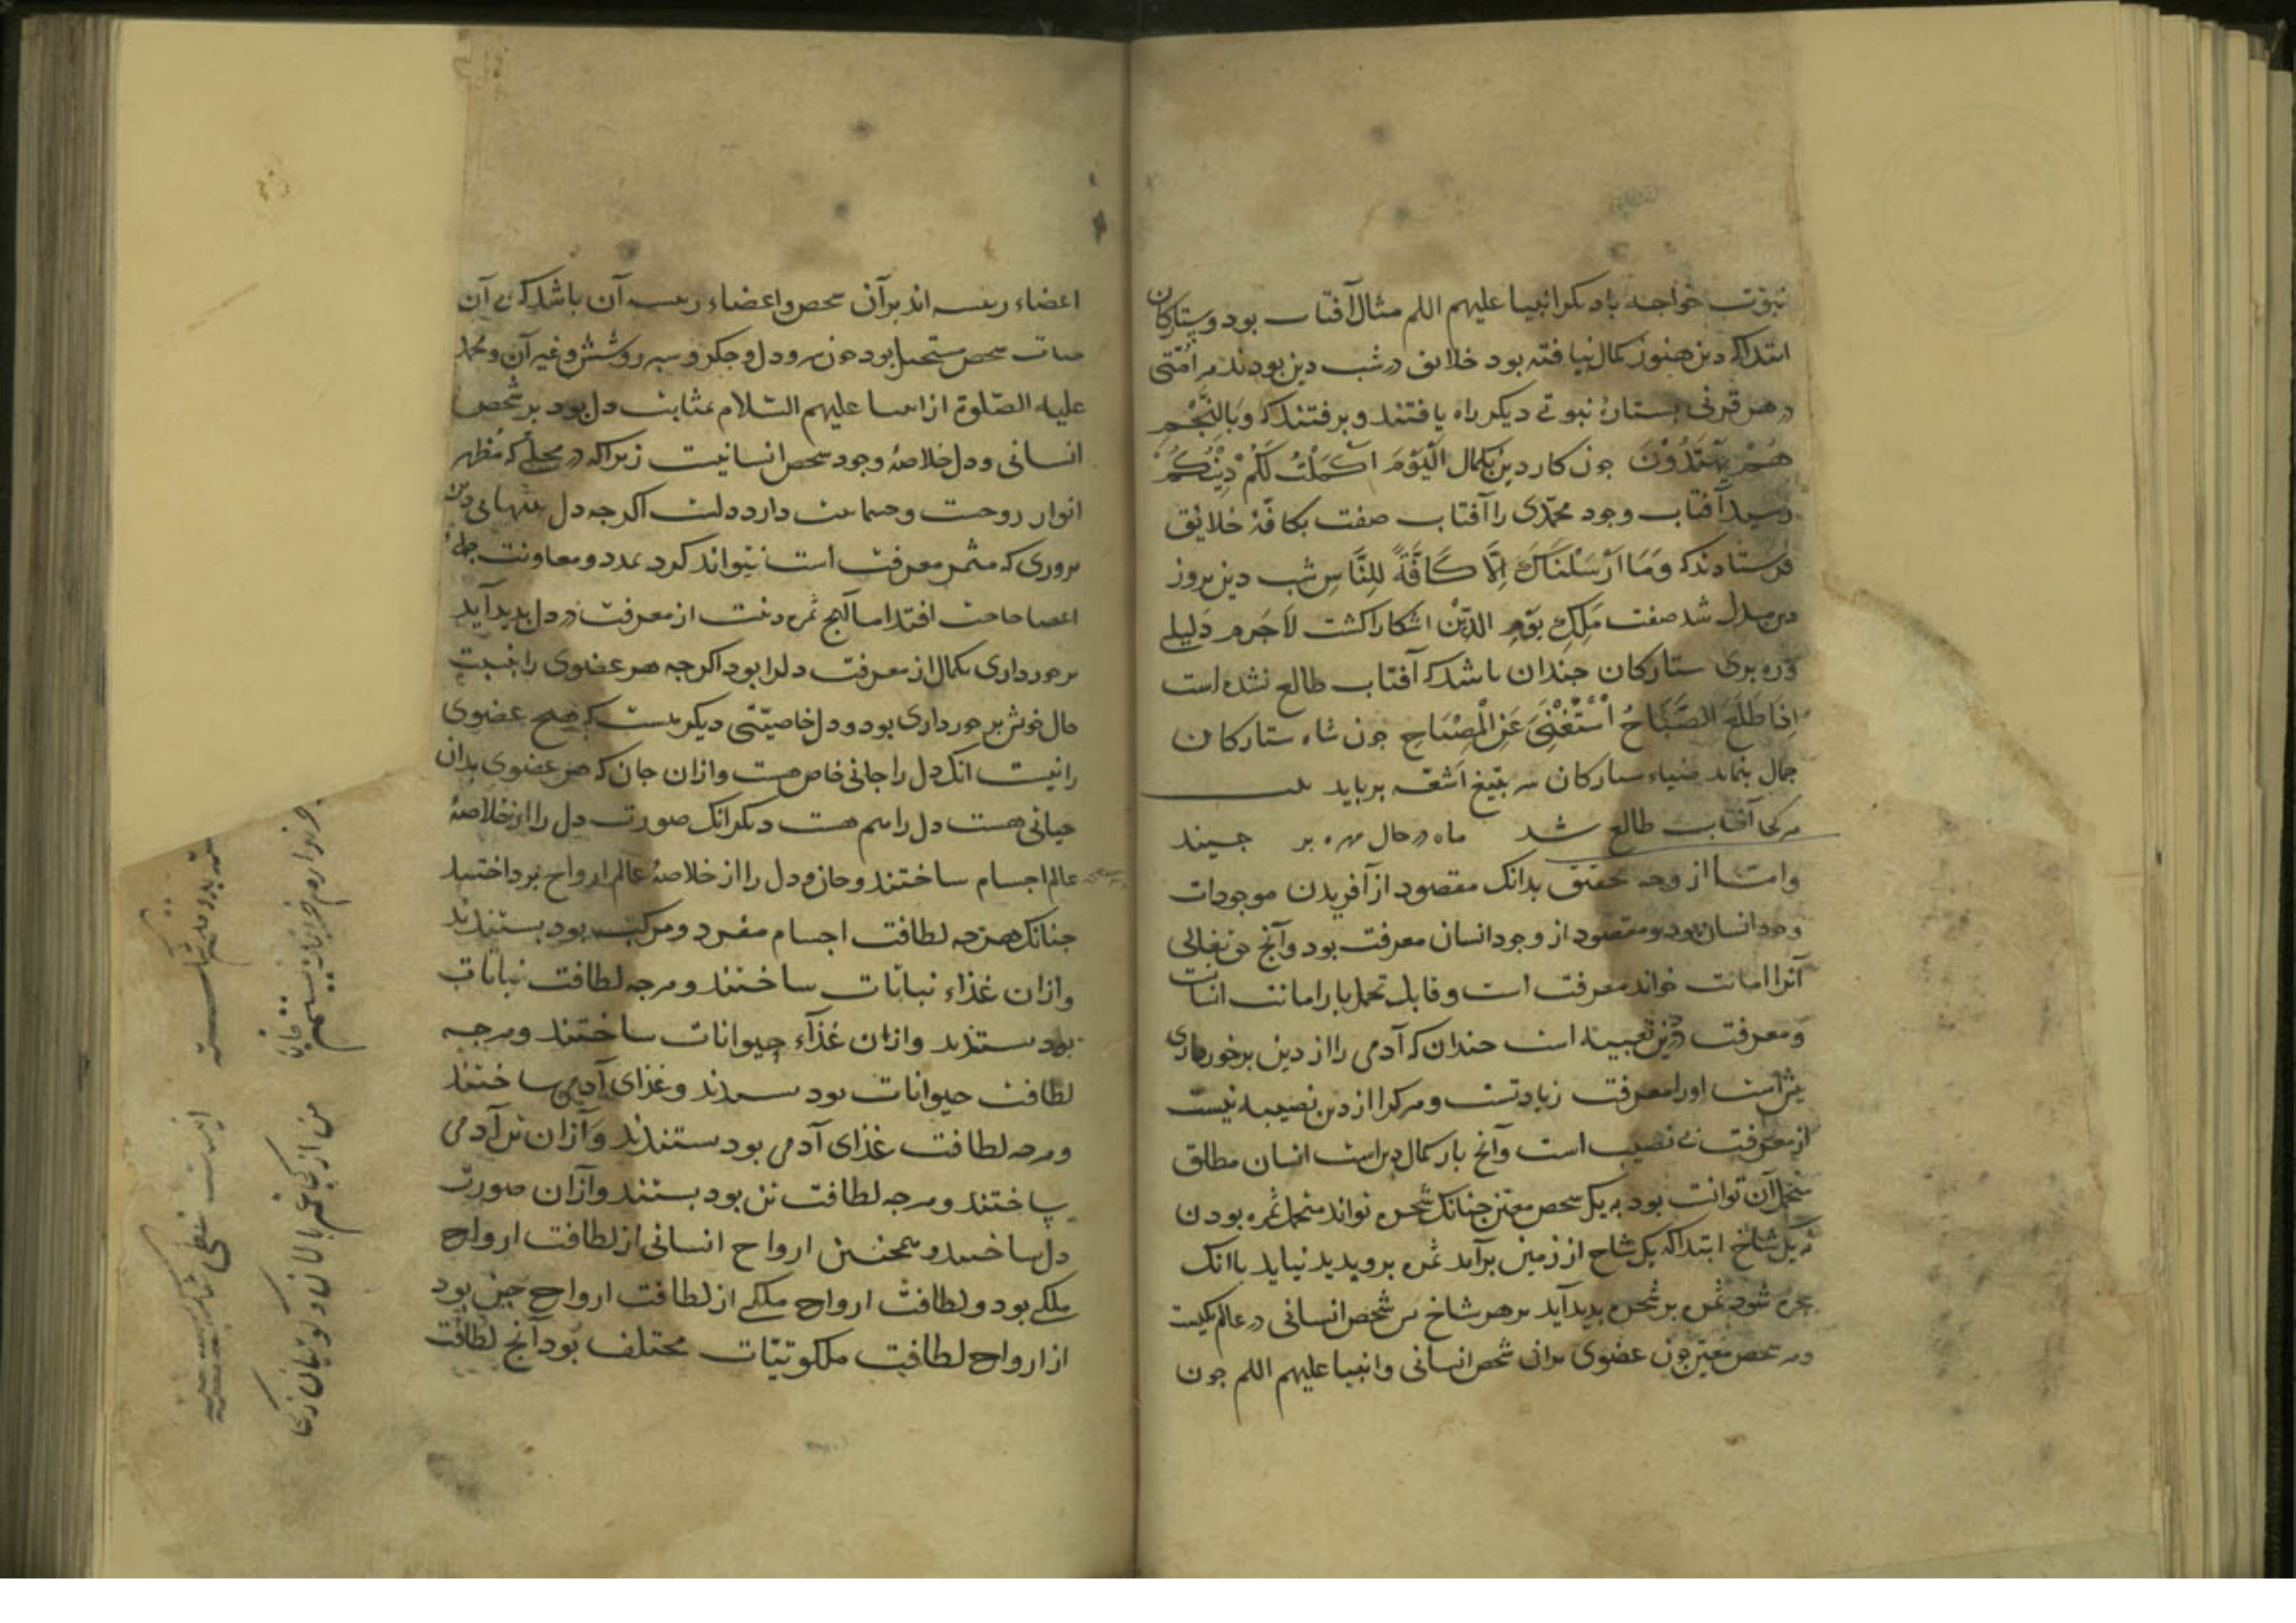 نبوت خواجه با دیکر انبیا علیهم اللم مثال آفتاب بود و ستارکان
ابتدا که دین هنوز کمال نیافته بود خلایق در شب دین بودند هر امتی
در هر قرنی بستارهٔ نبوتی دیکر راه یافتند و برفتند که وَبِالنَّجْمِ
هُمْ یَهْتَدُوْنَ جون کار دین بکمال اَلْیَوْمَ اَکْمَلْتُ لَکُمْ دِیْنَکُمْ
رسید آفتاب وجود محمّدی را آفتاب صفت بکافّهٔ خلایق
فرستادند که وَمَا اَرْسَلْنَاکَ اِلَّا کَافَّةً لِلنَّاسِ شب دین بروز
دین مبدل شد صفت مَلِکِ یَوْمِ الدِّیْن اشکارا کشت لاجرم دلیلی
و ره بری ستارکان جندان باشد که آفتاب طالع نشده است
اِذَا طَلَعَ الصَّبَاحُ اسْتُغْنِیَ عَنِ الْمِصْبَاحِ جون شاه ستارکان
جمال بنماید ضیاء ستارکان سر بتیغ اشعه برباید
هر کجا آفتاب طالع شد ماه در حال مهره بر جیند
و امّا از وجه تحقیق بدانک مقصود از آفریدن موجودات
وجود انسان بود و مقصود از وجود انسان معرفت بود و آنج حق تعالی
آنرا امانت خواند معرفت است و قابل تحمل بار امانت انسانست
و معرفت در دین تعبیه است جندان که آدمی را از دین برخورداری
بیشست او را معرفت زیادتست و هر کرا از دین نصیبه نیست
از معرفت بی نصیب است و آنج بار کمال دین است انسان مطلق
متحمل آن توانست بود نه یک شخص معین جنانک شجره تواند متحمل ثمره بودن
نه یک شاخ ابتدا که یک شاخ از زمین برآمد ثمره برو پدید نیاید تا آنک
شجره شود ثمره بر شجره پدید آید بر هر شاخ بس شخص انسانی در عالم یکیست
و هر شخص معین جون عضوی بران شخص انسانی و انبیا علیهم اللم جون
اعضاء رئیسه اند بر آن شخص و اعضاء رئیسه آن باشد که بی آن
حیات شخص مستحیل بود جون سر و دل و جکر و سپرز و شش و غیر آن و محمد
علیه الصّلوة از انبیا علیهم السّلام بمثابت دل بود بر شخص
انسانی و دل خلاصهٔ وجود شخص انسانیت زیراکه در محلّی که مُظهر
انوار روحست و جسمانیت دارد دلست اکرجه دل بتنهایی دین
بروری که مثمر معرفت است نتواند کرد بمدد و معاونت جملهٔ
اعضا حاجت افتد اما آنج ثمره دینت از معرفت در دل بدید آید
برخورداری بکمال از معرفت دلرا بود اکرجه هر عضوی را بنسبت
حال خویش برخورداری بود و دل خاصیّتی دیکر هست که هیچ عضوی
را نیست انک دل را جانی خاص هست و ازان جان که هر عضوی بدان
حیاتی هست دل را هم هست دیکر انک صورت دل را از خلاصهٔ
عالم اجسام ساختند و جان دل را از خلاصهٔ عالم ارواح برداختند
جنانک هرجه لطافت اجسام مفرد و مرکب بود بستدند
و ازان غذاء نباتات ساختند و هرجه لطافت نباتات
بود بستدند و ازان غذاء حیوانات ساختند و هرجه
لطافت حیوانات بود بستدند و غذای آدمی ساختند
و هرجه لطافت غذای آدمی بود بستدند و ازان تن آدمی
ساختند و هرجه لطافت تن بود بستدند و ازان صورت
دل ساختند و همجنین ارواح انسانی از لطافت ارواح
ملکی بود و لطافت ارواح ملکی از لطافت ارواح جن بود
از ارواح لطافت ملکوتیّات مختلف بود آنج لطافت
من از کجا غم باران و ناودان ز کجا